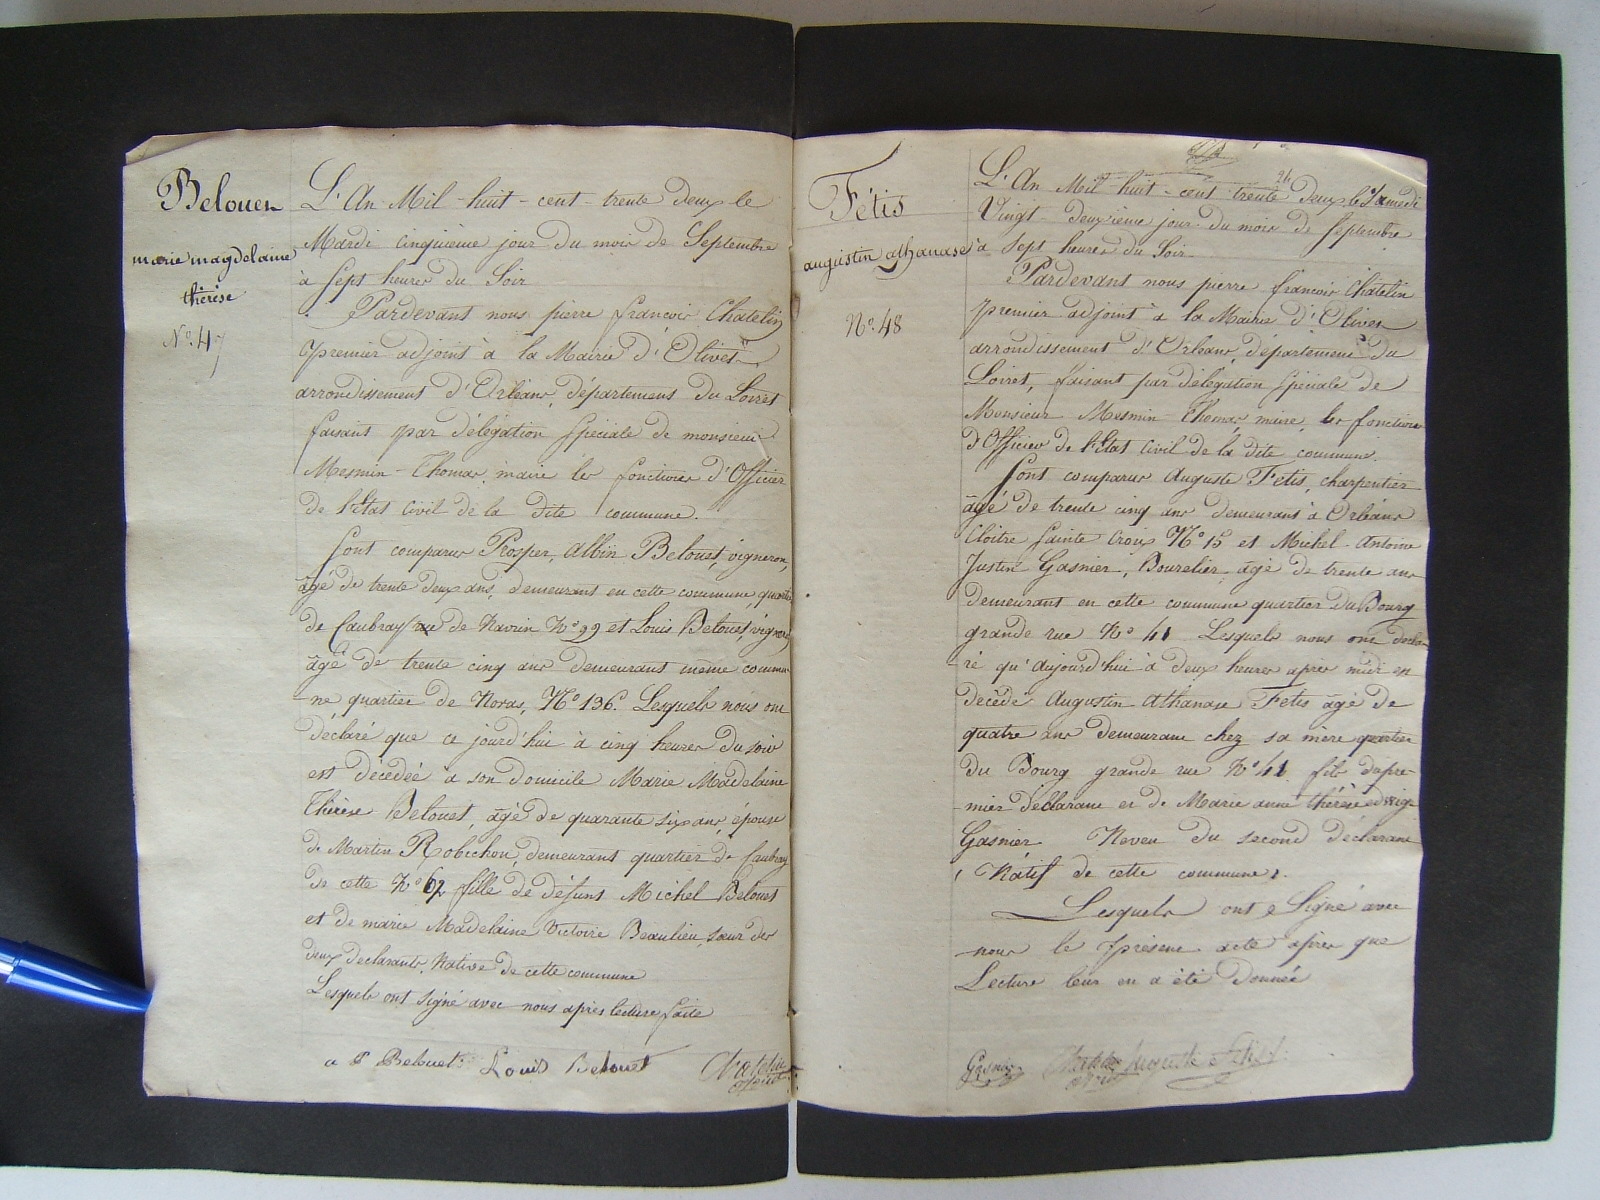 Belouet
marie magdelaine
thérèse
N° 47
L'An Mil-huit-cent-trente Deux le
Mardi cinquieme jour du mois de Septembre
à Sept heures du Soir
Pardevant nous pierre francois Chatelin
premier adjoint à la Mairie d'Olivet
arrondissement d'Orléans, département du Loiret
faisant par délégation Spéciale de monsieur
Mesmin-Thomas, maire les fonctions d'Officier
de l'Etat Civil de la dite commune.
Sont comparus Prosper, Albin Belouet, vigneron,
âgé de trente deux ans, demeurant en cette commune, quartier
de Caubray rue de N° 99 et Louis Belouet vigneron
âgé de trente cinq ans demeurant même commu-
ne quartier de Noras, N° 136. Lesquels nous ont
déclaré que ce jourd'hui à cinq heures du soir
est décédée à son domicile Marie Madelaine
Thérèse Belouet, âgé de quarante six ans, épouse
de Martin Robichon, demeurant quartier de Caubray
de cette N° 62 fille de défunt Michel Belouet
et de marie Madelaine Victoire Beaulieu, sœur des
deux déclarants, Native de cette commune
Lesquels ont signé avec nous après lecture faite
a P Belouet Louis Belouet Chatelin
adjoint
Fétis
augustin athanase
N° 48
24
L'An Mil-huit-cent trente Deux le Samedi
Vingt-deuxième jour du mois de Septembre
à Sept heures du Soir
Pardevant nous pierre francois Chatelin
premier adjoint à la Mairie d'Olivet
arrondissement d'Orléans, département du
Loiret, faisant par délégation Spéciale de
Monsieur Mesmin-Thomas maire, les fonctions
d'Officier de l'Etat Civil de la dite commune.
Sont comparus Auguste Fetis, charpentier
âgé de trente cinq ans demeurant à Orléans
Cloitre Sainte Croix N° 15 et Michel-Antoine
Justin Gasnier, Bourelier, agé de trente ans
demeurant en cette commune quartier du Bourg
grande rue N° 41 Lesquels nous ont décla-
ré qu'aujourd'hui à deux heures après midi est
decédé Augustin Athanase Fetis âgé de
quatre ans demeurant chez sa mère quartier
du Bourg grande rue N° 41 fils du pre-
-mier déclarant et de Marie anne thérèse edwige
Gasnier Neveu du second déclarant
Natif de cette commune.
Lesquels ont Signé avec
nous le présent acte après que
Lecture leur en a été Donnée
Gasnier Chatelin Auguste Fetis
adjoint